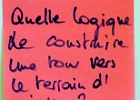 Quelle logique
de construire
une tour vers
le terrain d'